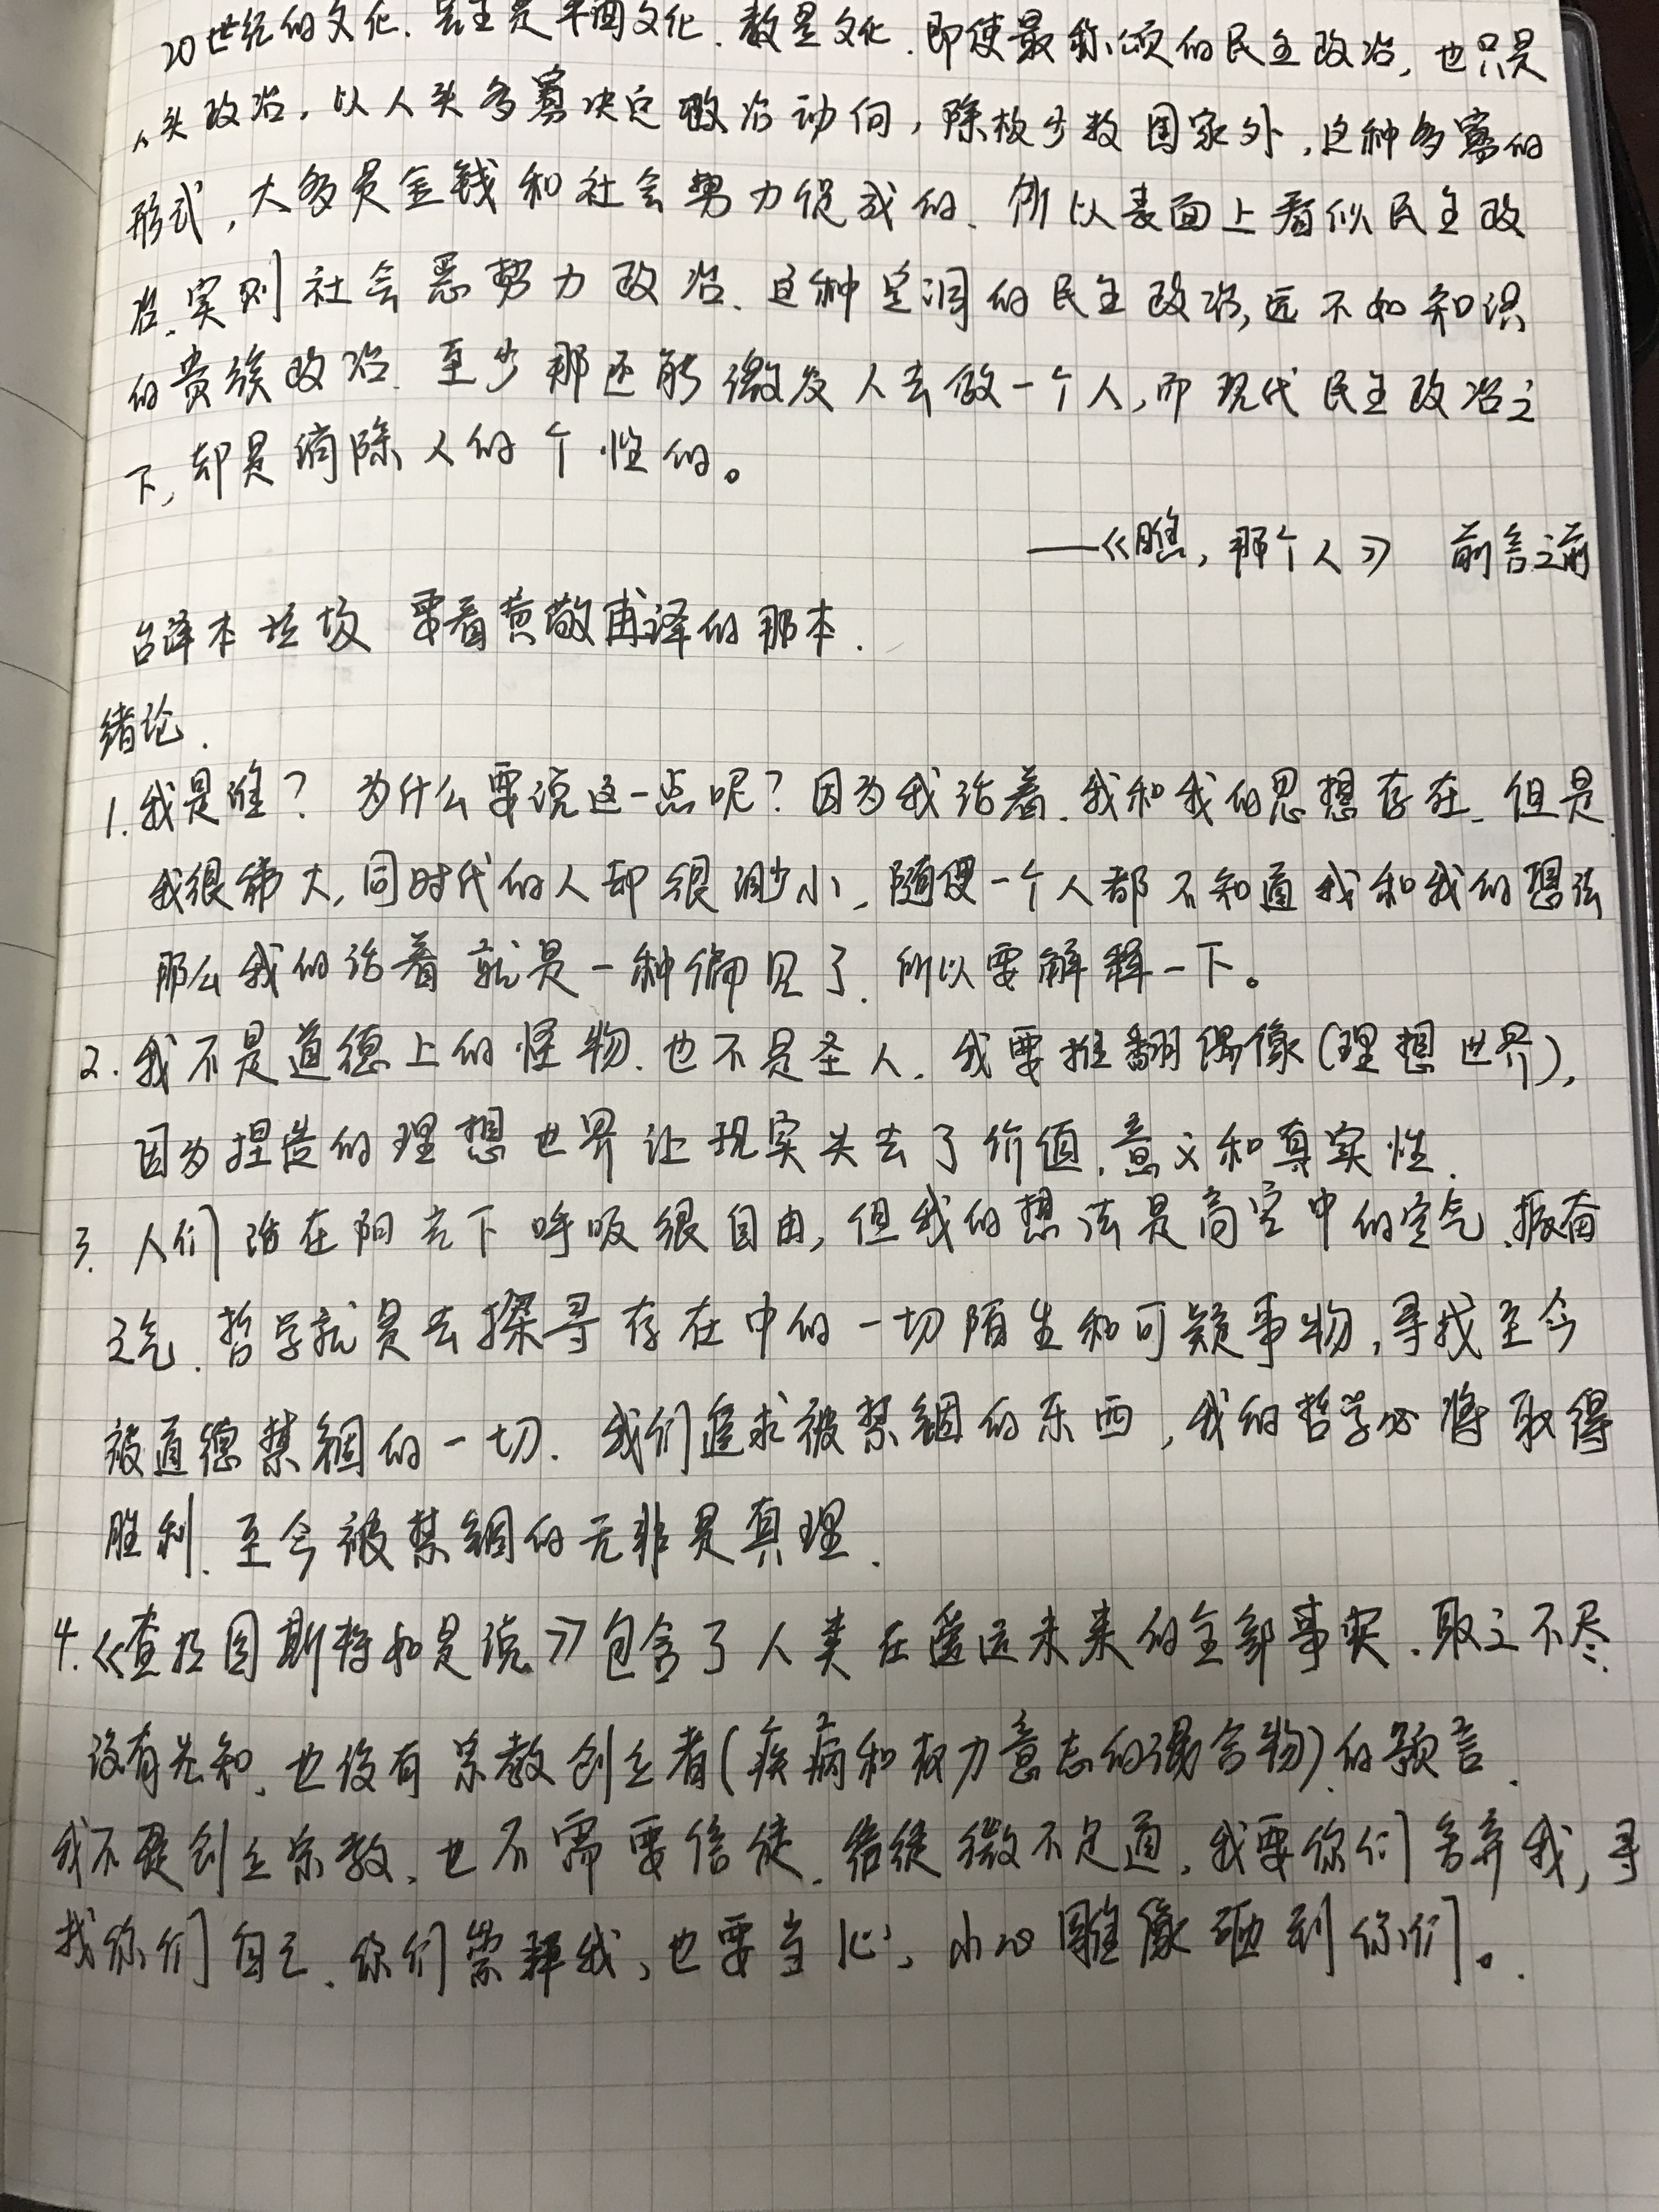 20世纪的文化.是平面文化.数量文化.即使最称颂的民主政治,也只是
人头政治,以人头多寡决定政治动向,除极少数国家外,这种多寡的
形式,大多是金钱和社会势力促成的.所以表面上看似民主政
治.实则社会恶势力政治.这种空洞的民主政治,远不如知识
的贵族政治.至少那还能激发人去做一个人,而现代民主政治之
下,却是消除人的个性的。
——《瞧,那个人》 前言之前
台译本垃圾 要看黄敬甫译的那本.
绪论.
1.我是谁?为什么要说这一点呢?因为我活着.我和我的思想存在.但是
我很伟大,同时代的人却很渺小,随便一个人都不知道我和我的想法
那么我的活着就是一种偏见了.所以要解释一下。
2.我不是道德上的怪物.也不是圣人.我要推翻偶像(理想世界),
因为捏造的理想世界让现实失去了价值.意义和真实性.
3.人们活在阳光下呼吸很自由,但我的想法是高空中的空气.振奋
之气.哲学就是去探寻存在中的一切陌生和可疑事物,寻找至今
被道德禁锢的一切.我们追求被禁锢的东西,我的哲学必将取得
胜利.至今被禁锢的无非是真理.
4.《查拉图斯特如是说》包含了人类在遥远未来的全部事实.取之不尽.
没有先知.也没有宗教创立者(疾病和权力意志的混合物)的预言.
我不是创立宗教.也不需要信徒.信徒微不足道.我要你们舍弃我,寻
找你们自己.你们崇拜我,也要当心,小心雕像砸到你们。